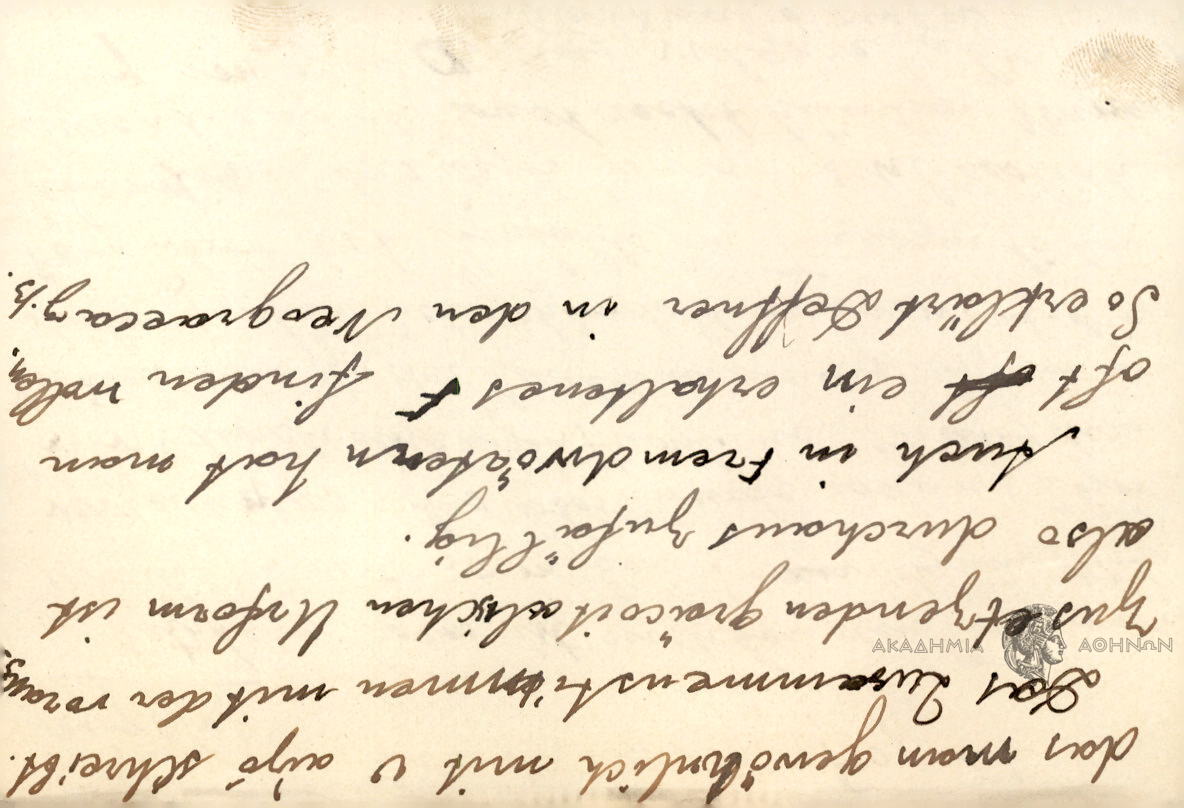 das man gewöhnlich mit υ αὐγό schreibt.
Das Zusammenstimmen mit der voraus
zusetzenden gräcoitalischen Urform ist
also durchaus zufällig.
Auch in Fremdwörtern hat man
oft ein erhaltenes F finden wollen,
So erklärt Deffner in den Neograeca z. B.
ΑΚΑΔΗΜΙΑ ΑΘΗΝΩΝ